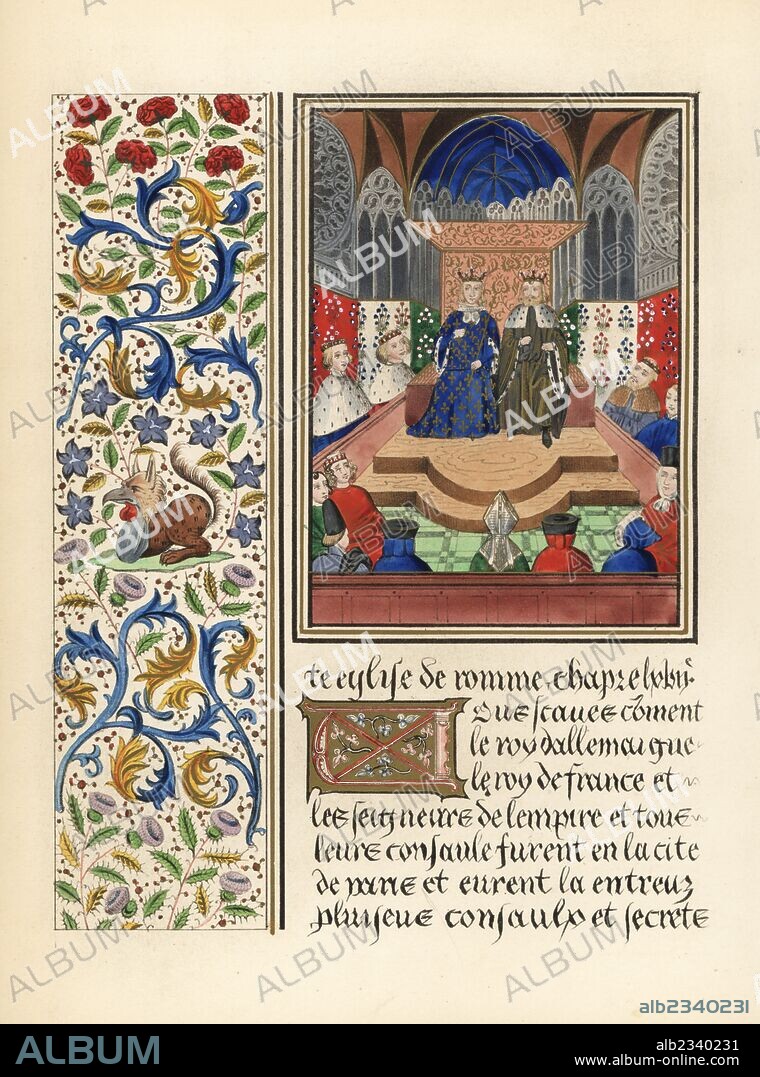 te eglise de romme. chapre lxbij.
Ous scaues cōment
le roy dallemaigne
le roy de france et
les seigneurs de lempire et tous
leurs consaulx furent en la cite
de paris et eurent la entreuz
pluiseus consaulx et secrets
alb2340231
ALBUM
alb2340231
www.album-online.com